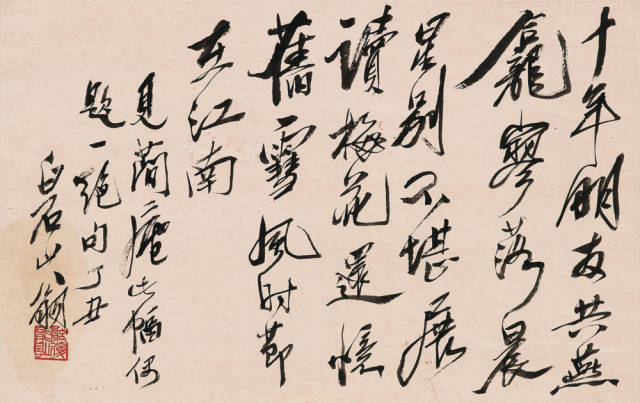 十年朋友共燕
龕寥落晨
星別不堪展
讀梅花還憶
舊雪風时節
在江南
見蕳庵此幅偶
題一絕句丁丑
白石山翁